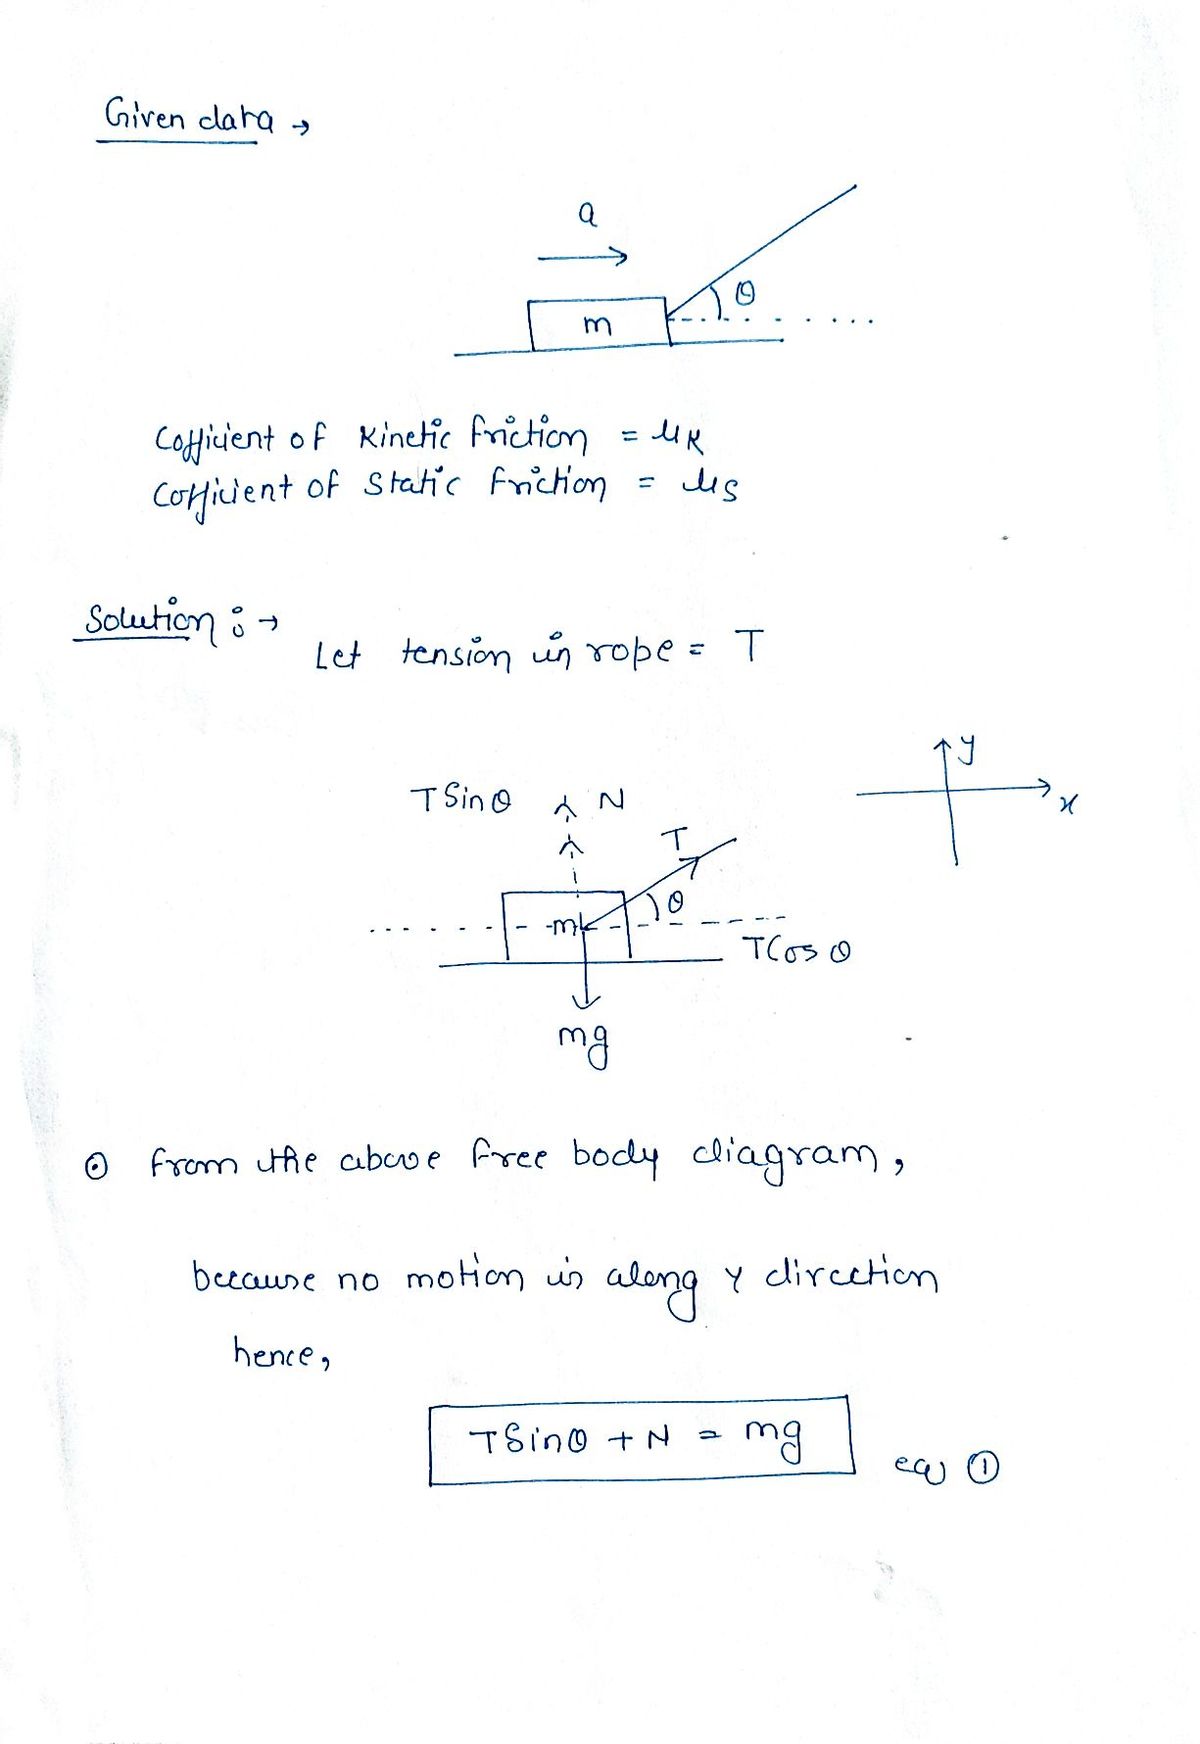 Given data →
a
m
θ
Cofficient of Kinetic friction = μK
Cofficient of Static friction = μs
Solution : →
Let tension in rope = T
y
x
T Sin θ
N
T
θ
m
T Cos θ
mg
⊙ from the above free body diagram,
because no motion is along Y direction
hence,
T Sin θ + N = mg
eq ①